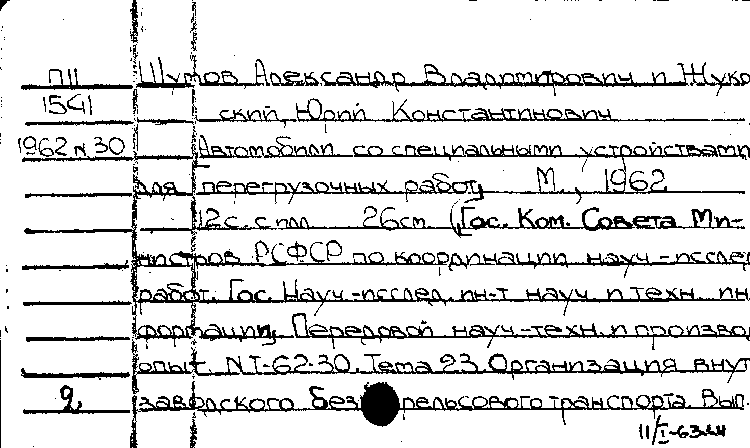 П11 Шумов Александр Владимирович и Жуко
1541 ский, Юрий Константинович
1962 N 30 Автомобили со специальными устройствами
для перегрузочных работ, М., 1962
12с. с илл. 26см. (Гос. Ком. Совета Ми-
нистров РСФСР по координации науч.-исслед
работ. Гос. Науч.-исслед. ин-т науч. и техн. ин
формации, Передовой науч.-техн. и производ
опыт. N I-62-30. Тема 23. Организация внут
2, заводского безрельсового транспорта. Вып.